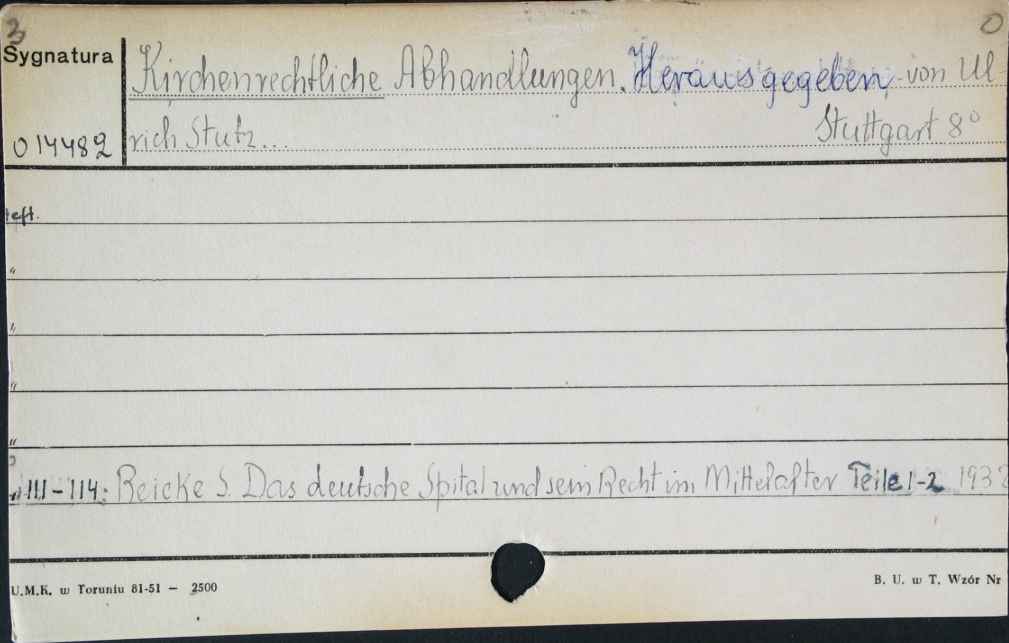 3 O
Sygnatura Kirchenrechtliche Abhandlungen. Herausgegeben von Ul-
014482 rich Stutz... Stuttgart 8°
eft.
"
"
"
"
111-114: Reicke S. Das deutsche Spital und sein Recht im Mittelalter Teile 1-2 1932
U.M.K. w Toruniu 81-51 — 2500 B. U. w T. Wzór Nr